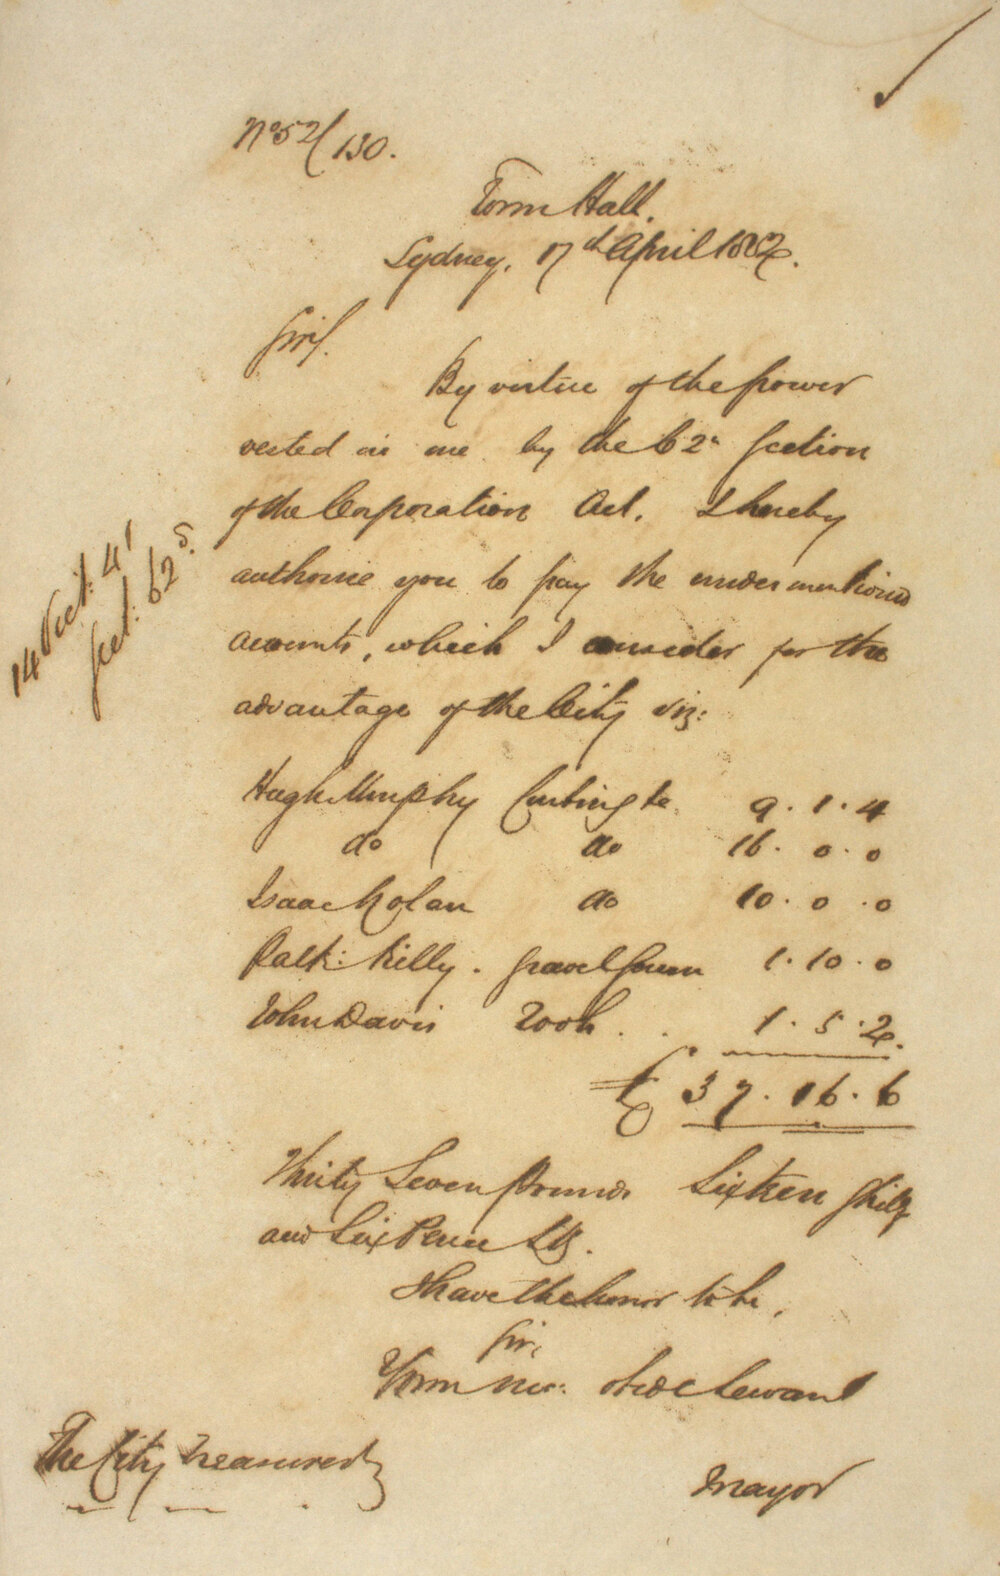 No 52/130.
Town Hall.
Sydney, 17th April 1852.
Sir,
By virtue of the power
vested in me by the 62d Section
of the Corporation Act, I hereby
authorise you to pay the undermentioned
accounts, which I consider for the
advantage of the City viz:
14 Vict: 41
Sect: 62
Hugh Murphy 9.1.4
do do 16.0.0
Isaac Nolan do 10.0.0
Patk: Kelly. 1.10.0
John Davis 1.5.2.
£37.16.6
Thirty Seven Pounds Sixteen Shillgs
and Six Pence Stg.
I have the honor to be,
Sir,
Your obedt Servant
The City Treasurer
Mayor